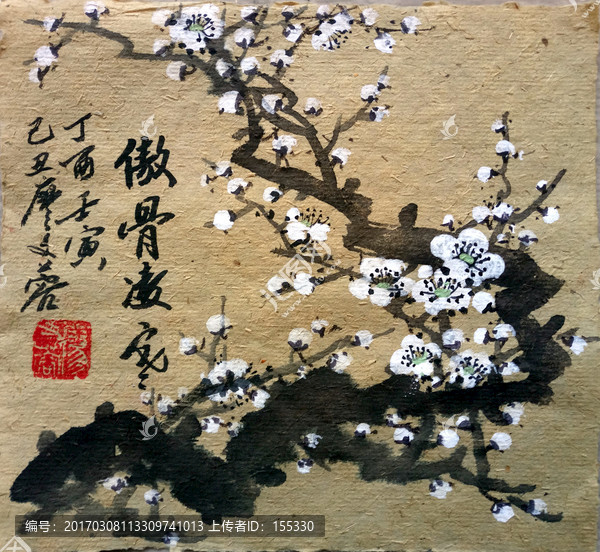 傲骨凌寒
丁酉壬寅
己丑廖文蓉
编号：20170308113309741013 上传者ID：155330